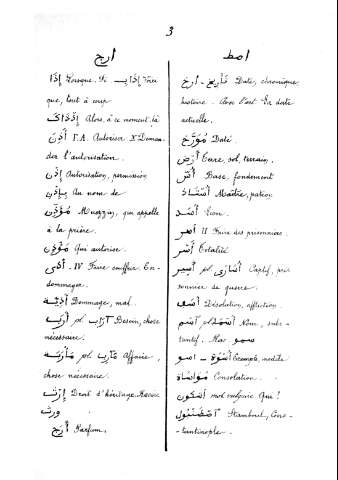 3
أرج
إذَا Lorsque. Si إذَا بـ Voici
que, tout à coup
إذْذَاك Alors, à ce moment là
أَذِنَ I.A. Autoriser X Deman-
der l'autorisation.
إذْن Autorisation, permission
بِإذْنِ Au nom de
مُؤَذِّن Muezzin, qui appelle
à la prière.
مُؤْذِن Qui autorise.
أذى . IV Faire souffrir. En-
dommager.
أَذِيَّة Dommage, mal.
أَرَب pl آرَاب Besoin, chose
nécessaire.
مَأْرَبَة pl مَآرِب Affaire,
chose nécessaire.
إرْث Droit d'héritage. Racine
ورث
أَرَج Parfum.
اصط
أرخ - تَأْرِيخ Date, chronique,
histoire. Avec l'art. La date
actuelle.
مُؤَرَّخ Daté
أَرْض Terre, sol, terrain.
أُسّ Base, fondement
أُسْتَاذ Maître, patron
أَسَد Lion.
أَسَرَ II Faire des prisonniers.
أَسْر Totalité
أَسِير pl أُسَارَى Captif, pri-
sonnier de guerre.
أَسَف Désolation, affliction.
اسْم pl أَسْمَاء Nom, subs-
tantif. Rac سمو
اسو - أُسْوَة Exemple, modèle
مُؤَاسَاة Consolation.
أَشْكُون mot vulgaire. Qui ?
اصْطَنْبُول Stamboul, Cons-
tantinople.